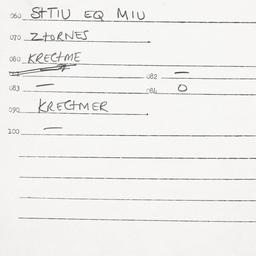 060 StTIU EQ MIU
070 ZtORNES
080 KRECtME
082 —
083 — 084 O
090 KRECtMER
100 —